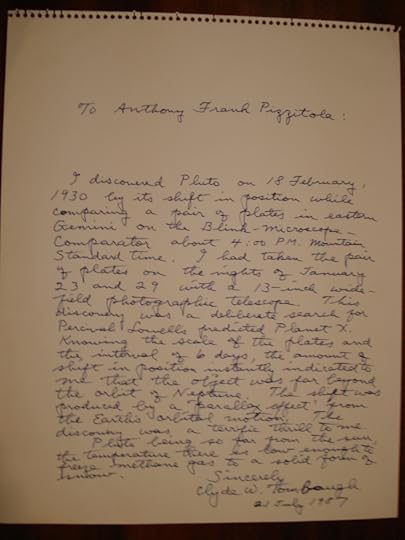 To Anthony Frank Pizzitola:
I discovered Pluto on 18 February,
1930 by its shift in position while
comparing a pair of plates in eastern
Gemini on the Blink-Microscope-
Comparator about 4:00 P.M. Mountain
Standard time. I had taken the pair
of plates on the nights of January
23 and 29 with a 13-inch wide-
field photographic telescope. This
discovery was a deliberate search for
Percival Lowells predicted Planet X.
Knowing the scale of the plates and
the interval of 6 days, the amount of
shift in position instantly indicated to
me that the object was far beyond
the orbit of Neptune. The shift was
produced by a "parallax effect" from
the Earth's orbital motion. The
discovery was a terrific thrill to me.
Pluto being so far from the sun,
the temperature there is low enough to
freeze methane gas to a solid form of
snow.
Sincerely
Clyde W. Tombaugh
July 1987